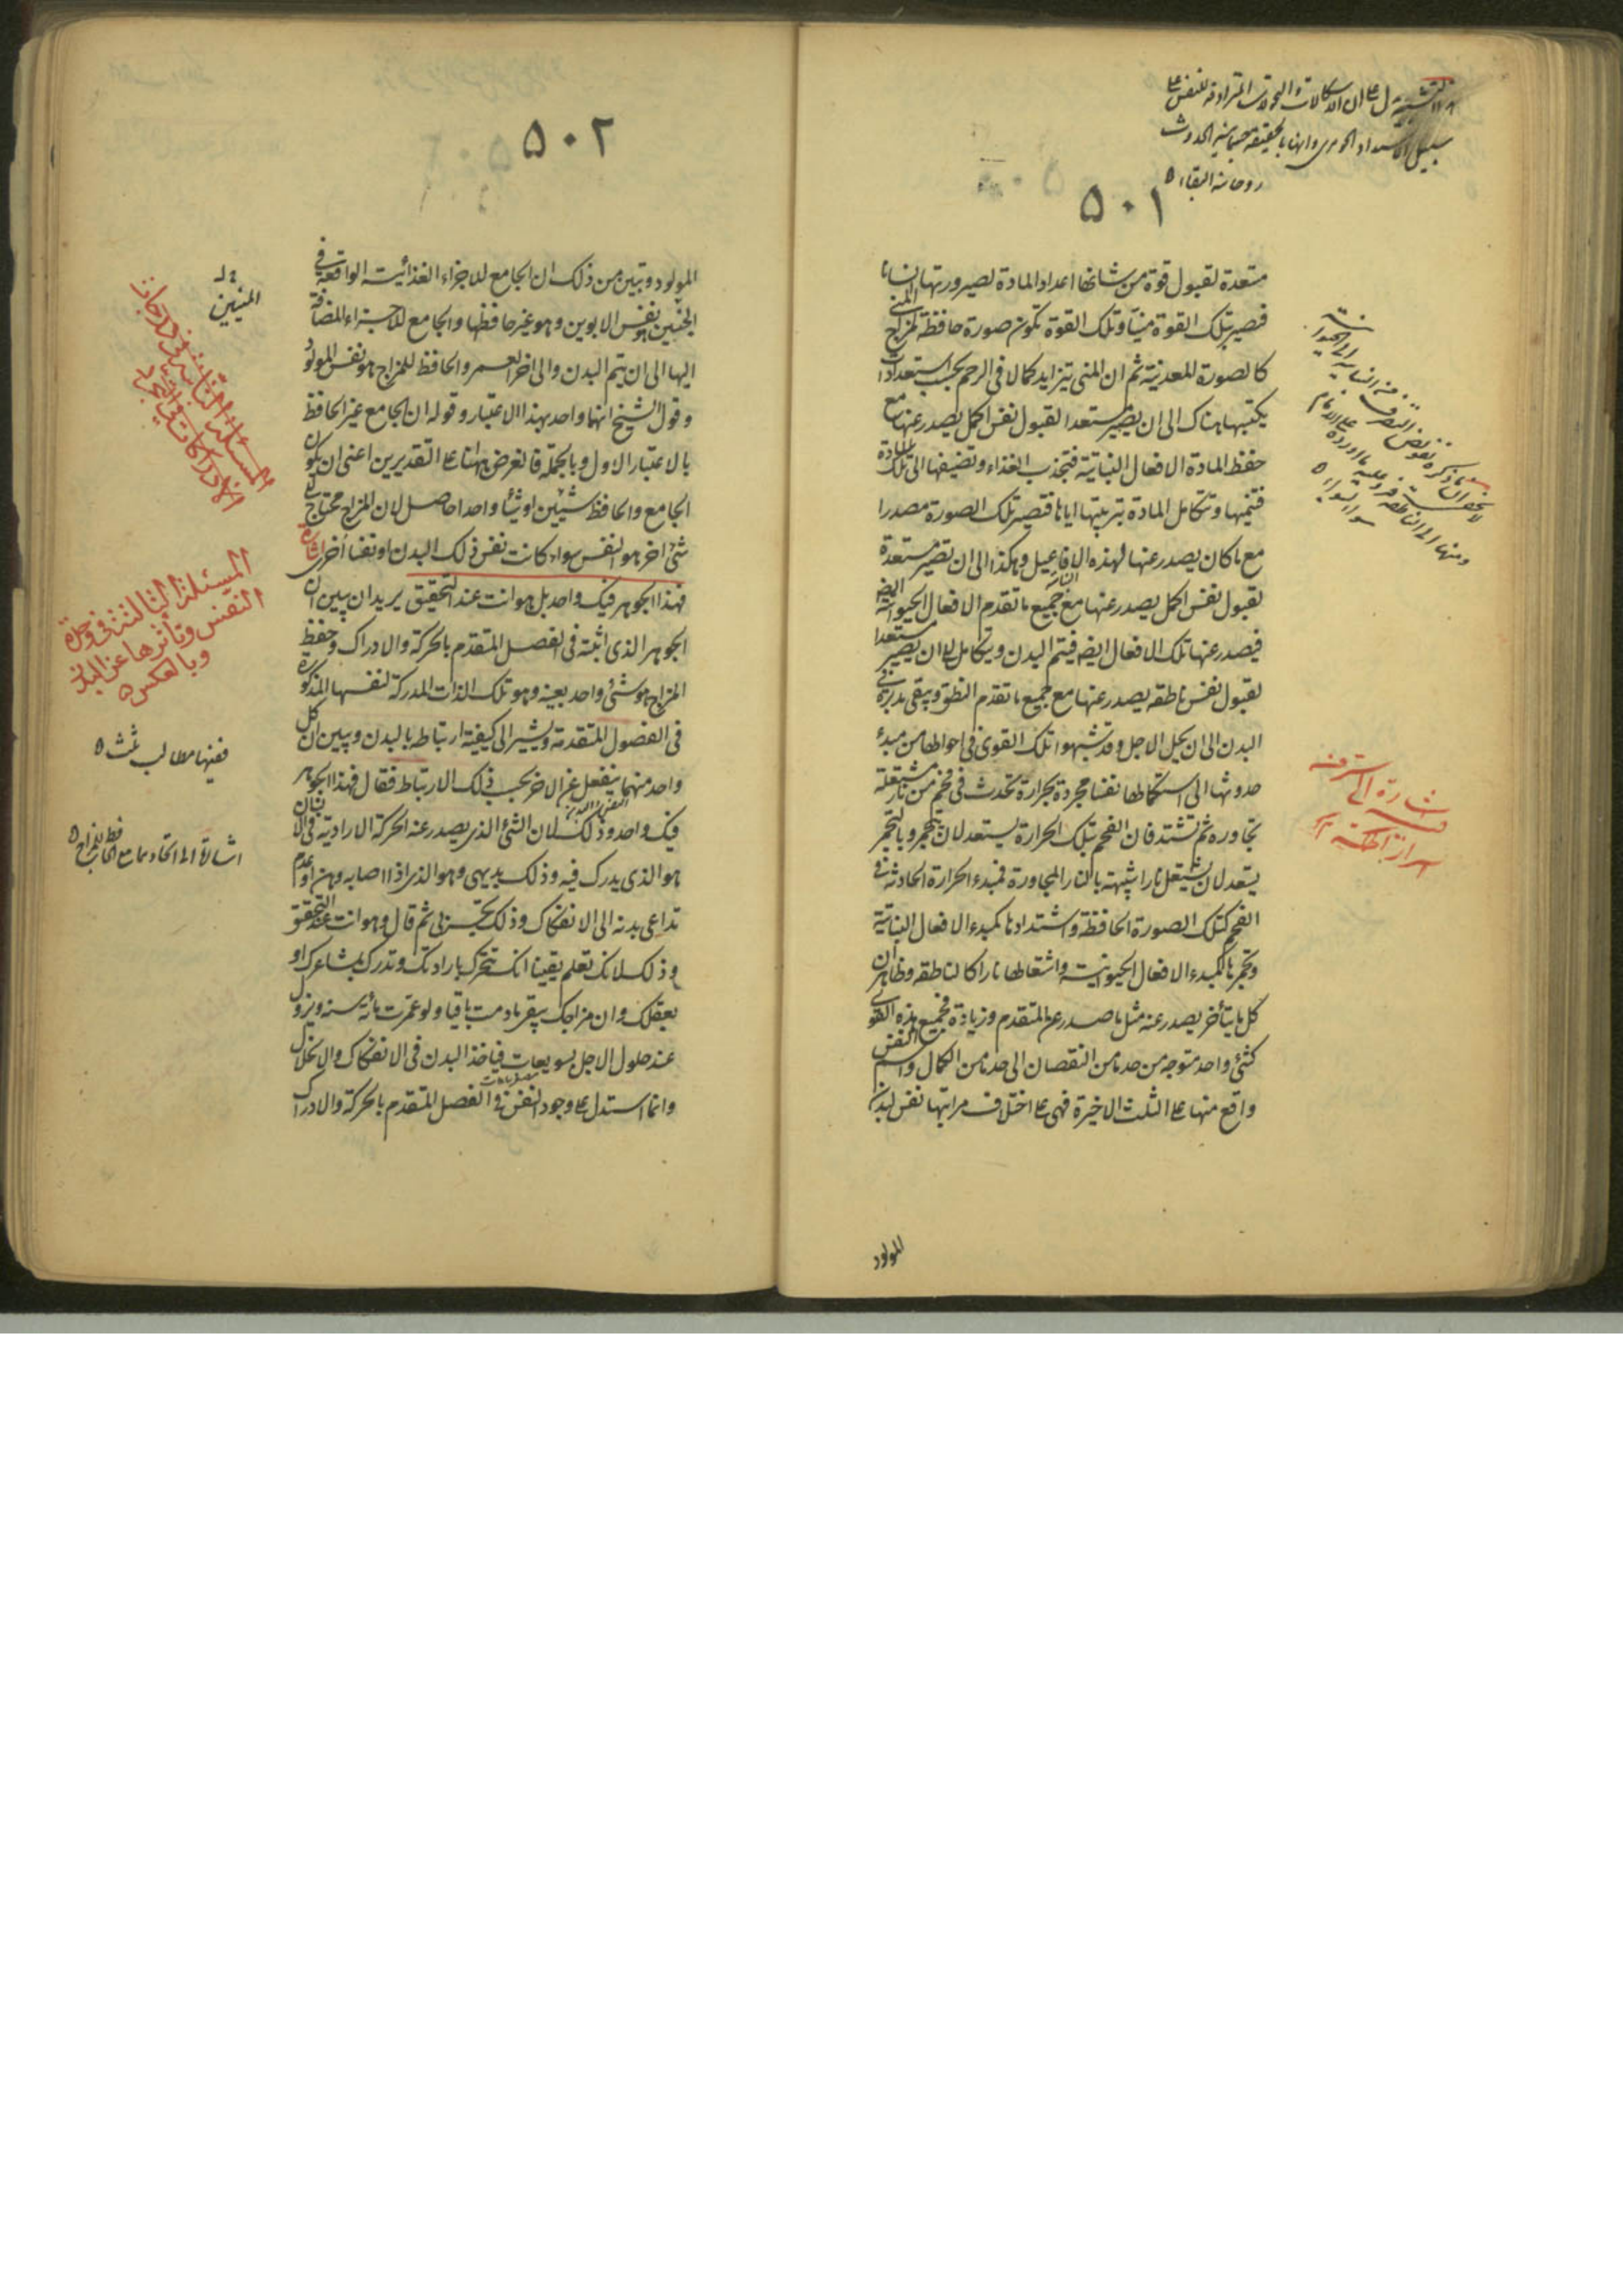 ٥٠١
مستعدة لقبول قوة من شانها اعداد المادة لصيرورتها انسانا
فتصير بتلك القوة منيا وتلك القوة تكون صورة حافظة لمزاج المنى
كالصورة المعدنية ثم ان المنى يتزايد كمالا فى الرحم بحسب استعدادات
يكتسبها هناك الى ان يصير مستعدا لقبول نفس اكمل يصدر عنها مع
حفظ المادة الافعال النباتية فتجذب الغذاء وتضيفها الى تلك المادة
فتنميها وتتكامل المادة بتربيتها اياها فتصير تلك الصورة مصدرا
مع ما كان يصدر عنها لهذه الافاعيل وهكذا الى ان تصير مستعدة
لقبول نفس اكمل يصدر عنها مع جميع ما تقدم الافعال الحيوانية ايضه
فيصدر عنها تلك الافعال ايضه فيتم البدن ويتكامل الى ان يصير مستعدا
لقبول نفس ناطقه يصدر عنها مع جميع ما تقدم النطق ويبقى مدبرة فى
البدن الى ان يحل الاجل وقد شبهوا تلك القوى فى احوالها من مبدء
حدوثها الى استكمالها نفسا مجردة بحرارة تحدث فى فحم من نار مشتعلة
تجاوره ثم تشتد فان الفحم بتلك الحرارة يستعد لان يتجمر وبالتجمر
يستعد لان يشتعل نارا شبيهة بالنار المجاورة فمبدء الحرارة الحادثة فى
الفحم كتلك الصورة الحافظة واشتدادها كمبدء الافعال النباتية
وتجمرها كمبدء الافعال الحيوانية واشتعالها نارا كالناطقه وظاهر ان
كل ما يتأخر يصدر عنه مثل ما صدر عن المتقدم وزيادة فجميع هذه القوى
كشئ واحد متوجه من حد ما من النقصان الى حد ما من الكمال واسم النفس
واقع منها على الثلث الاخيرة فهى على اختلاف مراتبها نفس لبدن
المولود
اشارة الى
٥٠٢
المولود وتبين من ذلك ان الجامع للاجزاء الغذائية الواقعة فى
الجنين هو نفس الابوين وهو غير حافظها والجامع للاجزاء المضافة
اليها الى ان يتم البدن والى اخر العمر والحافظ للمزاج هو نفس المولود
وقول الشيخ انهما واحد بهذا الاعتبار وقوله ان الجامع غير الحافظ
بالاعتبار الاول وبالجملة فالغرض ههنا على التقديرين اعنى ان يكون
الجامع والحافظ شيئين او شيئا واحدا حاصل لان المزاج محتاج الى
شئ اخر هو النفس سواء كانت نفس ذلك البدن او نفسا اخرى اشارة
فهذا الجوهر فيك واحد بل هو انت عند التحقيق يريد ان يبين ان
الجوهر الذى اثبته فى الفصل المتقدم بالحركة والادراك وحفظ
المزاج هو شئ واحد بعينه وهو تلك الذات المدركة لنفسها المذكورة
فى الفصول المتقدمة ويشير الى كيفية ارتباطه بالبدن ويبين ان كل
واحد منهما ينفعل عن الاخر بحسب ذلك الارتباط فقال فهذا الجوهر
فيك واحد وذلك لان الشئ الذى يصدر عنه الحركة الارادية فى الانسان
هو الذى يدرك فيه وذلك بديهى وهو الذى اذا اصابه وهن او عدم
تداعى بدنه الى الانفكاك وذلك تجربى ثم قال وهو انت عند التحقيق
وذلك لانك تعلم يقينا انك تتحرك بارادتك وتدرك بمشاعرك او
بعقلك وان مزاجك يبقى ما دمت باقيا ولو عمرت مأية سنه ويزول
عند حلول الاجل بسويعات فياخذ البدن فى الانفكاك والانحلال
وانما استدل على وجود النفس فى الفصل المتقدم بالحركة والادراك
المسئلة الثالثة فى وحدة
النفس وتأثرها عن البدن
وبالعكس ٥
ففيها مطالب ثلث ٥